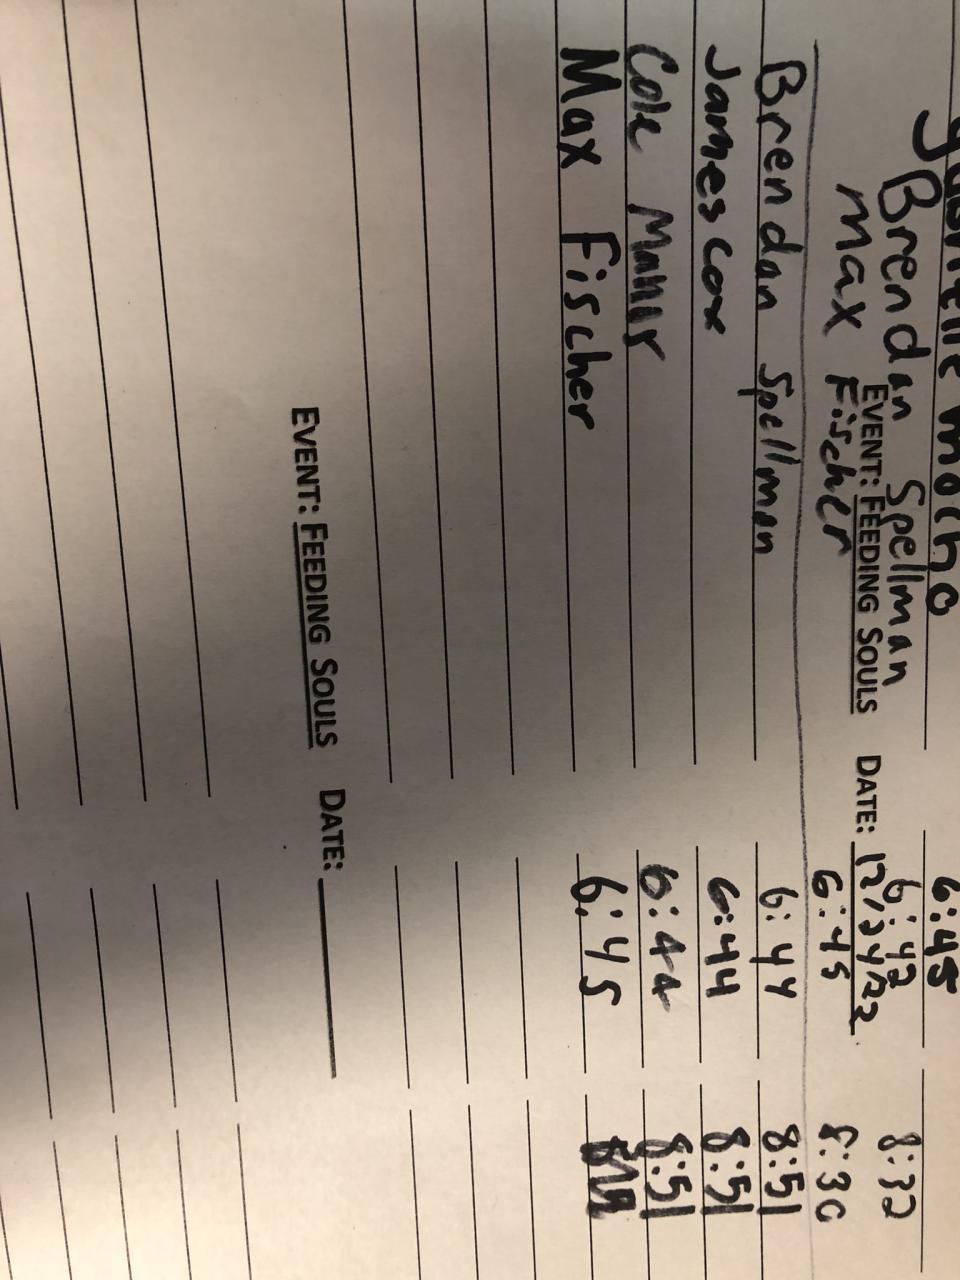 6:45
Brendan Spellman 6:42 8:32
EVENT: FEEDING SOULS DATE: 12/24/22
Max Fischer 6:45 8:30
Brendan Spellman 6:44 8:51
James Cox 6:44 8:51
Cole 6:44 8:51
Max Fischer 6:45
EVENT: FEEDING SOULS DATE: